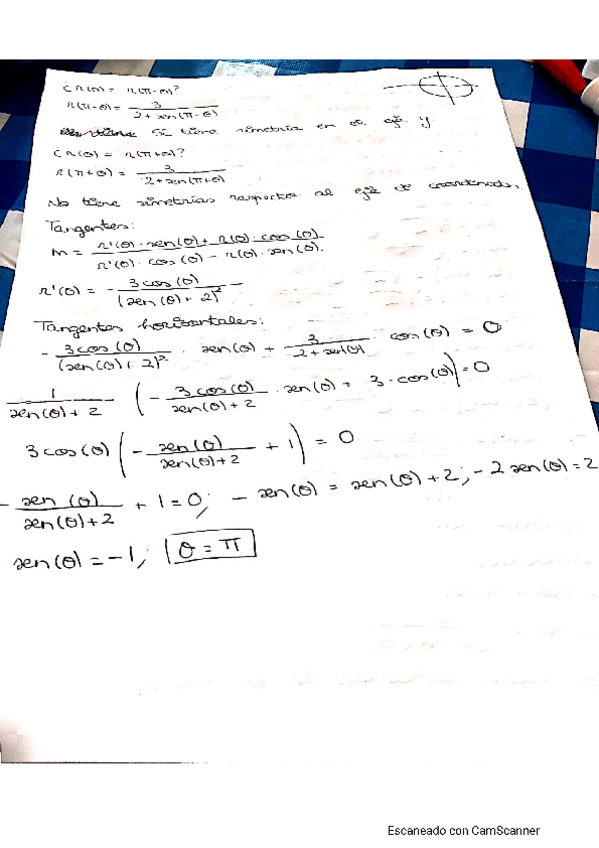 ¿r(θ) = r(π-θ)?
r(π-θ) = 3/(2+sen(π-θ))
Si tiene simetria en el eje y
¿r(θ) = r(π+θ)?
r(π+θ) = 3/(2+sen(π+θ))
No tiene simetrías respecto al eje de coordenadas.
Tangentes:
m = (r'(θ)·sen(θ)+ r(θ)·cos(θ))/(r'(θ)·cos(θ) - r(θ)·sen(θ)).
r'(θ) = - 3cos(θ)/(sen(θ)+2)²
Tangentes horizontales:
- 3cos(θ)/(sen(θ)+2)² · sen(θ) + 3/(2+sen(θ)) · cos(θ) = 0
1/(sen(θ)+2) (- 3cos(θ)/(sen(θ)+2) · sen(θ) + 3·cos(θ)) = 0
3cos(θ) (- sen(θ)/(sen(θ)+2) + 1) = 0
- sen(θ)/(sen(θ)+2) + 1 = 0; - sen(θ) = sen(θ)+2; -2sen(θ) = 2
sen(θ) = -1; θ = π
Escaneado con CamScanner